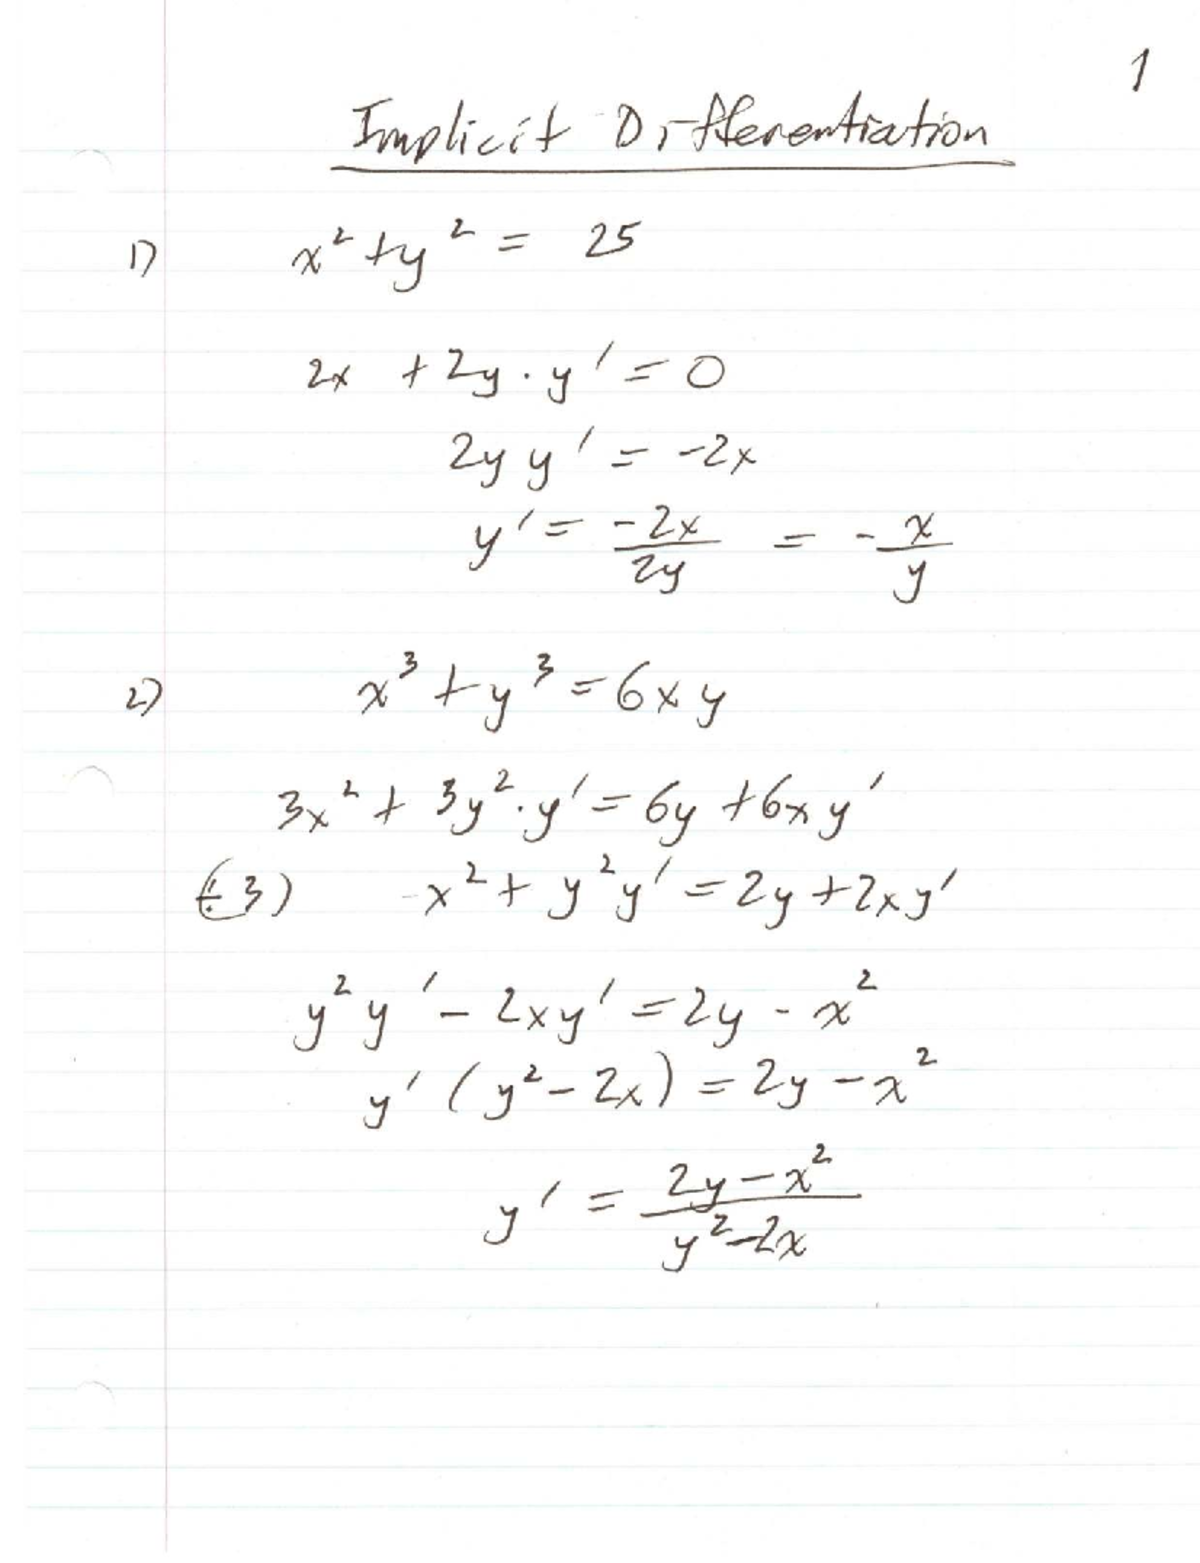 1
Implicit Differentiation
1) x² + y² = 25
2x + 2y · y' = 0
2y y' = -2x
y' = -2x/2y = -x/y
2) x³ + y³ = 6xy
3x² + 3y² · y' = 6y + 6xy'
(÷3) x² + y²y' = 2y + 2xy'
y²y' - 2xy' = 2y - x²
y' (y² - 2x) = 2y - x²
y' = 2y - x² / y² - 2x